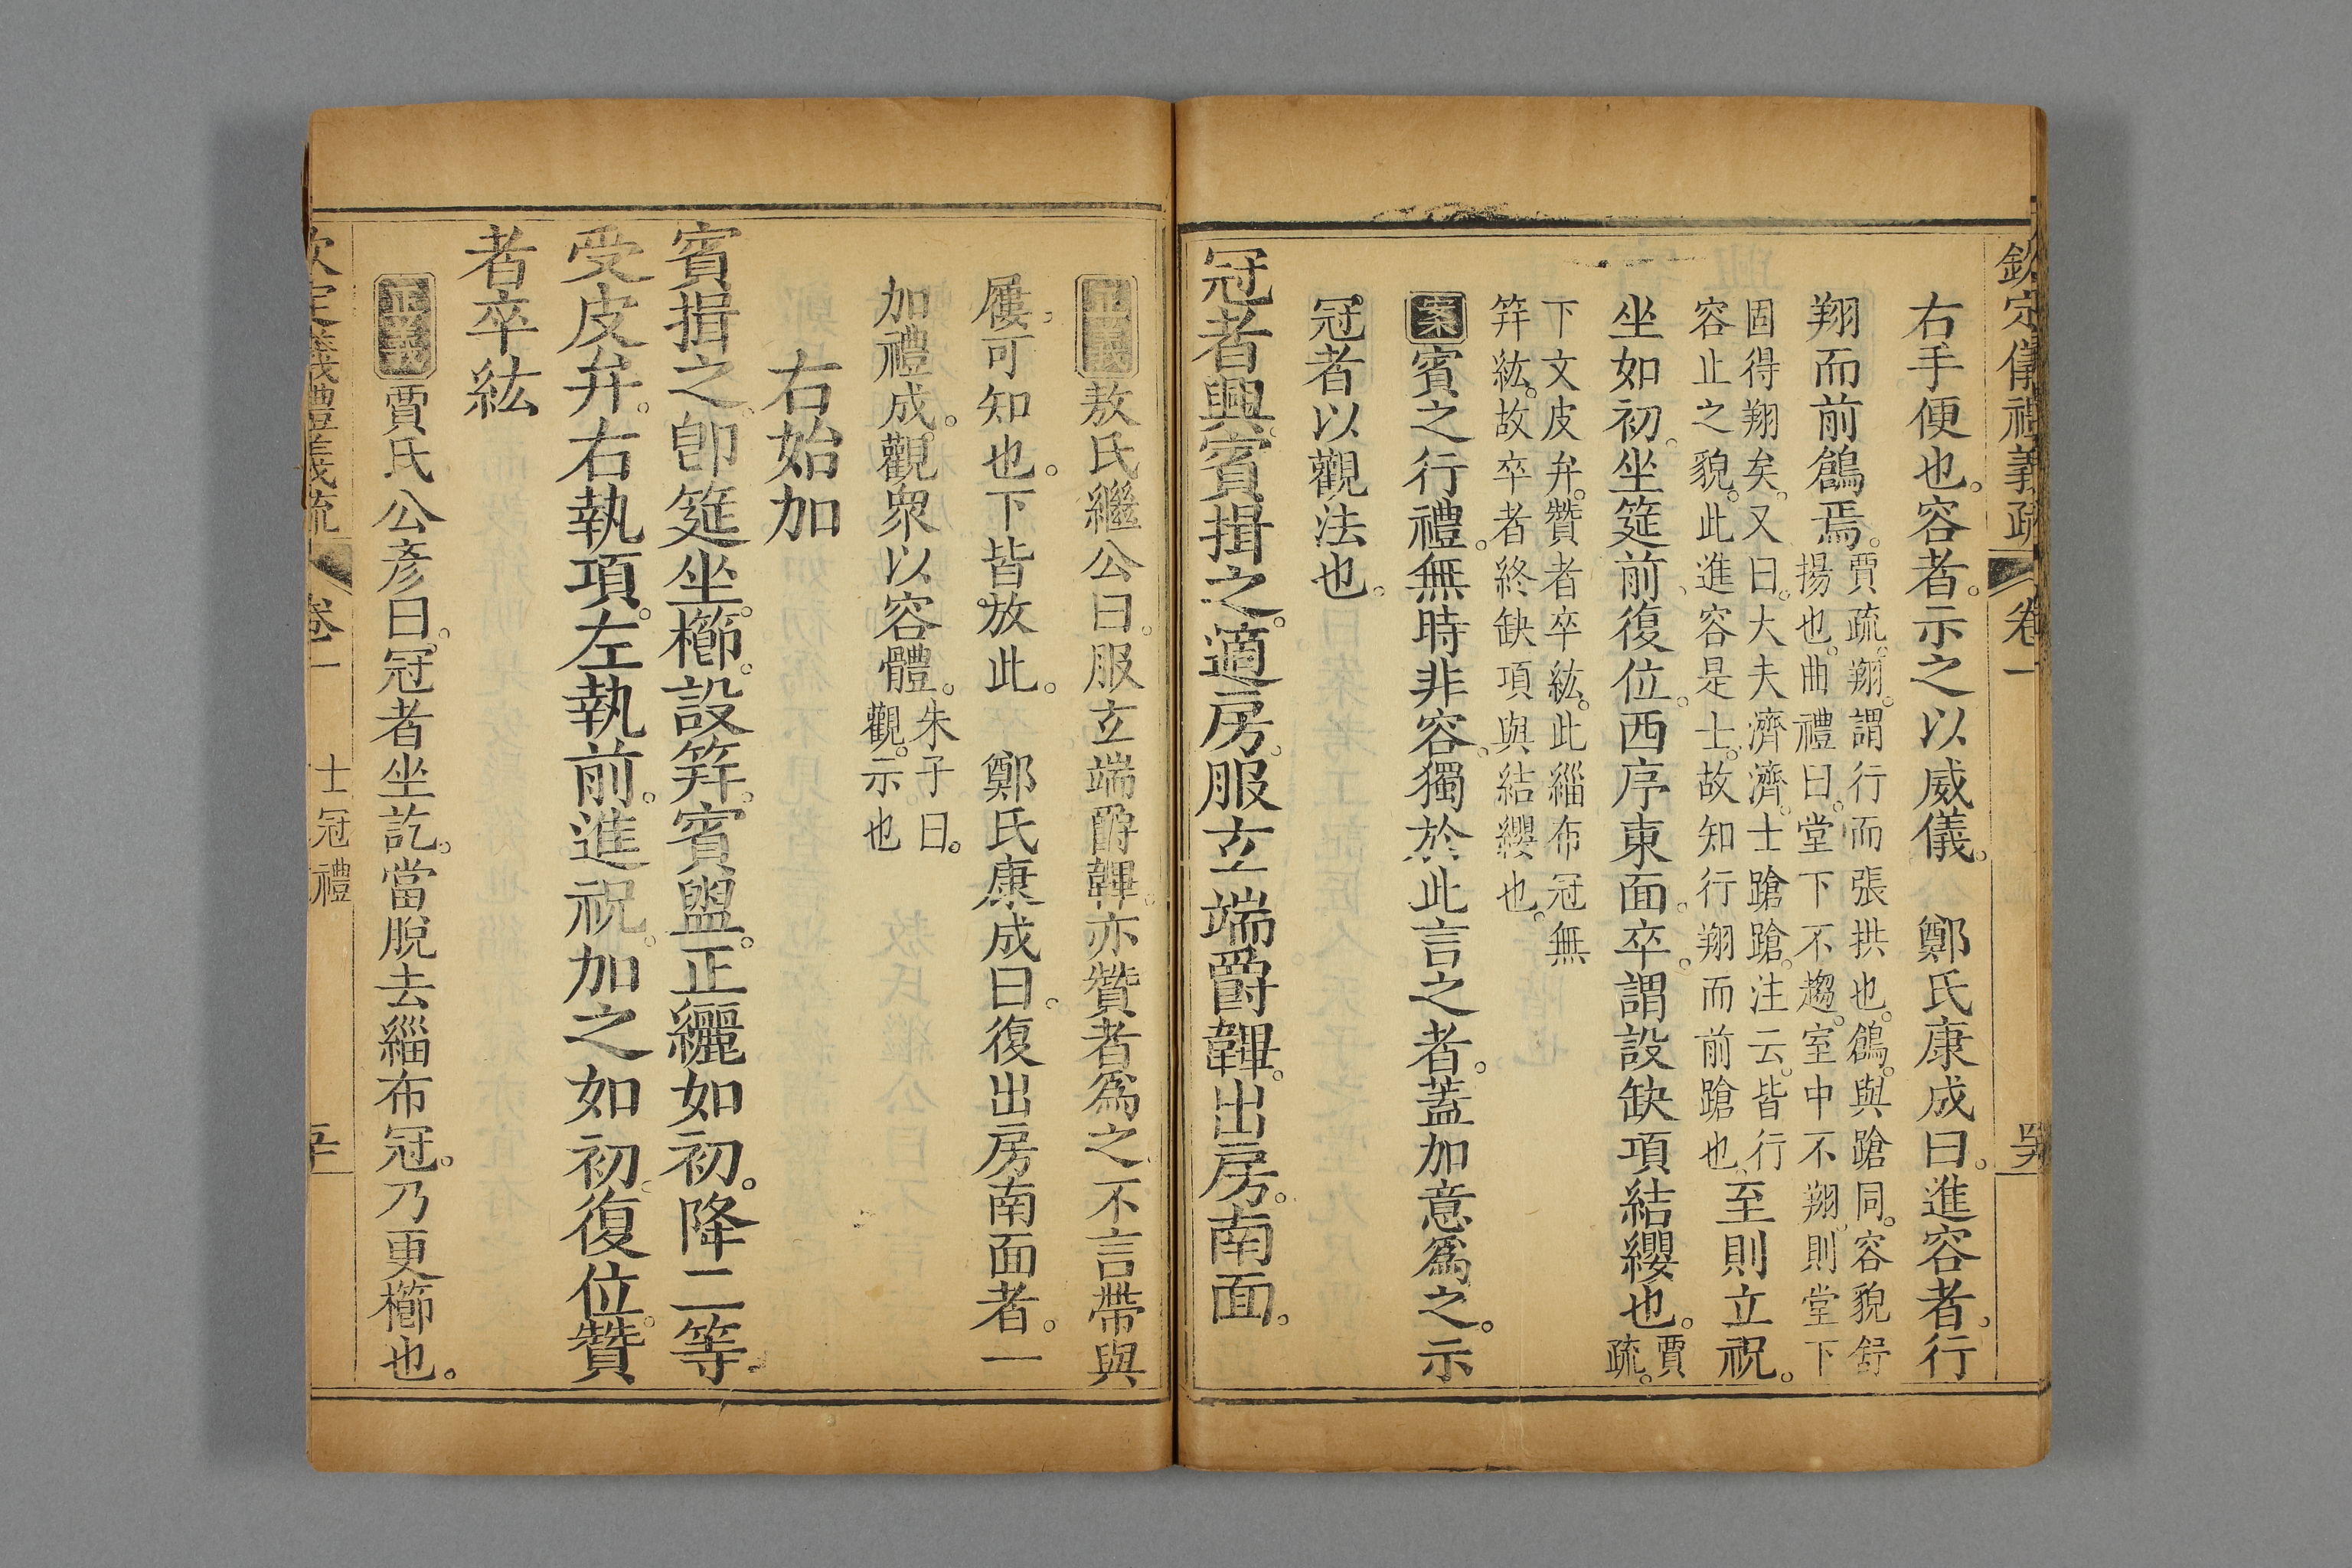 欽定儀禮義疏 卷一
右手便也。容者。示之以威儀。 鄭氏康成曰。進容者。行
翔而前鶬焉。
賈疏。翔。謂行而張拱也。鶬。與蹌同。容貌舒
揚也。曲禮曰。堂下不趨。室中不翔。則堂下
固得翔矣。又曰。大夫濟濟。士蹌蹌。注云。皆行
容止之貌。此進容是士。故知行翔而前蹌也。
至則立祝。
坐如初。坐筵前。復位。西序東面。卒。謂設缺項結纓也。
賈
疏。
下文皮弁。贊者卒紘。此緇布冠無
笄紘。故卒者終缺項與結纓也。
案 賓之行禮。無時非容。獨於此言之者。蓋加意爲之。示
冠者以觀法也。
冠者興。賓揖之。適房。服玄端爵韠。出房。南面。
正義 敖氏繼公曰。服玄端爵韠。亦贊者爲之。不言帶與
屨。可知也。下皆放此。 鄭氏康成曰。復出房南面者。一
加禮成。觀衆以容體。
朱子曰。
觀。示也
右始加
賓揖之。卽筵坐。櫛。設笄。賓盥。正纚如初。降二等。
受皮弁。右執項。左執前。進祝。加之如初。復位。贊
者卒紘
正義 賈氏公彥曰。冠者坐訖。當脫去緇布冠。乃更櫛也。
欽定儀禮義疏 卷一 士冠禮